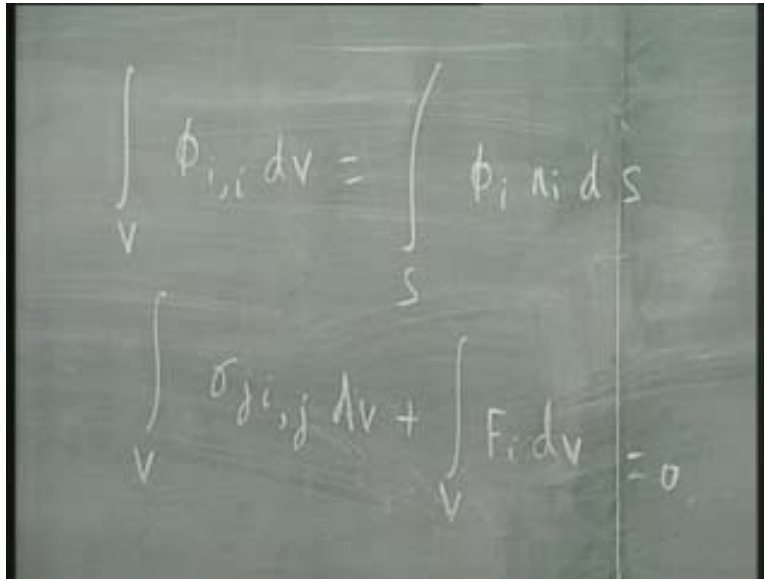 ∫_V ϕ_{i,i} dv = ∫_S ϕ_i n_i d s
∫_V σ_{ji,j} dv + ∫_V F_i dv = 0